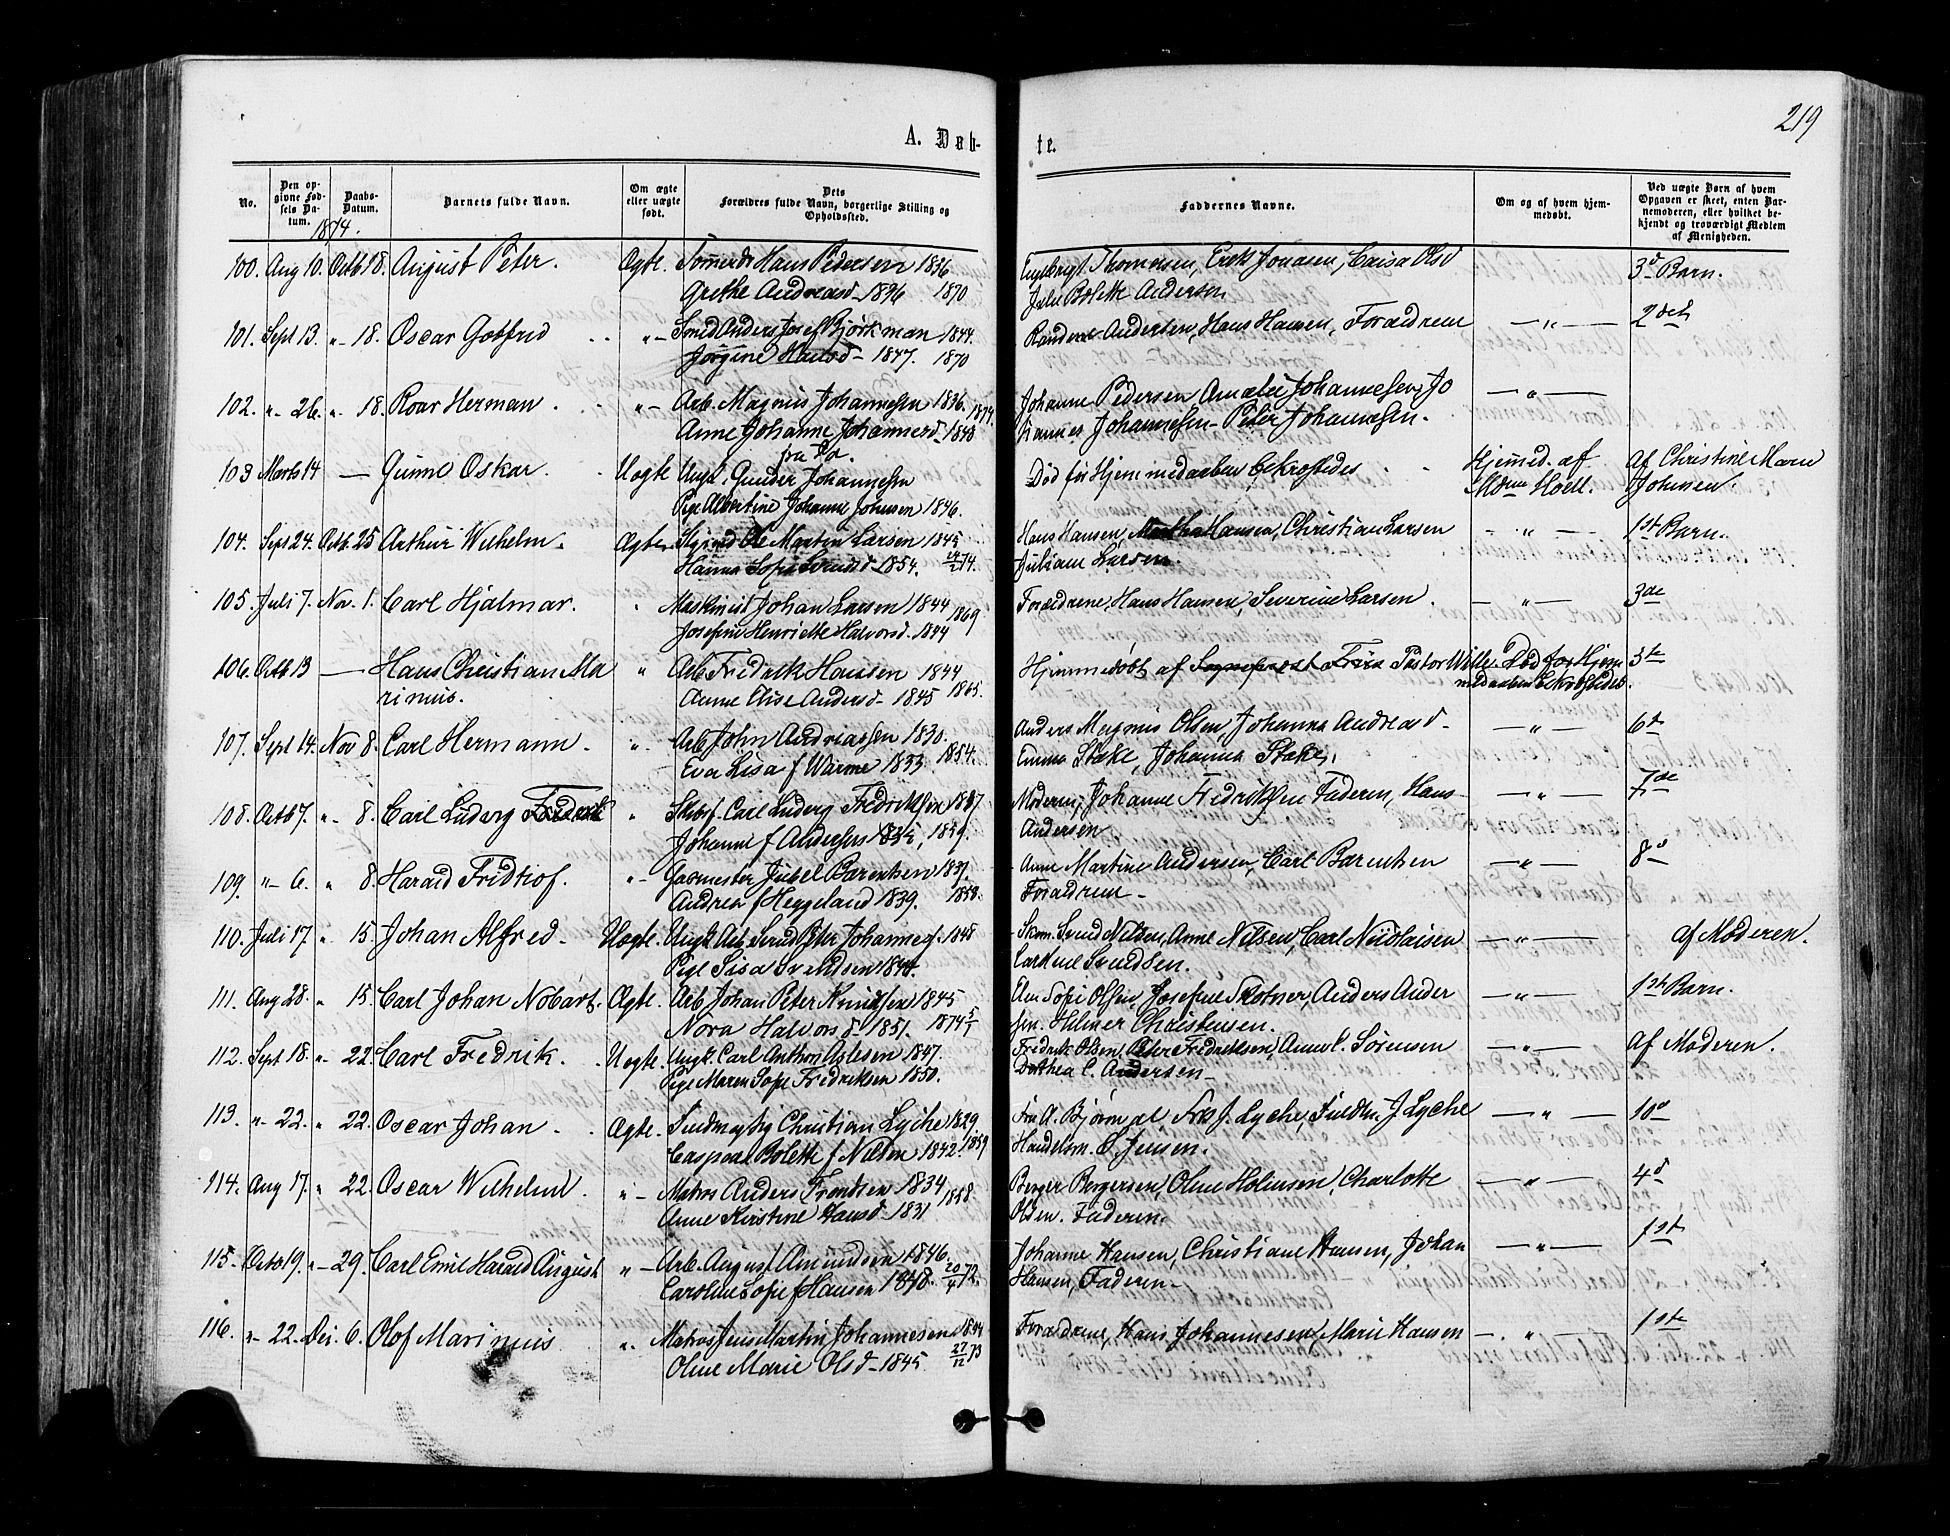 219
A. Døb-
te.
No.
Den op-
givne Fød-
sels Da-
tum.
Daabs-
Datum.
Barnets fulde Navn.
Om ægte
eller uægte
født.
Dets
Forældres fulde Navn, borgerlige Stilling og
Opholdssted.
Faddernes Navne.
Om og af hvem hjem-
medøbt.
Ved uægte Børn af hvem
Opgaven er skeet, enten Bar-
nemoderen, eller hvilket be-
kjendt og troværdigt Medlem
af Menigheden.
1874.
100. Aug 10. Octb 18. August Peter. Ægte. Hans Pedersen 1836 Thomesen, Erik Jonasen, Olsd 3d Barn.
Grethe Andreasd- 1836 1870 Bolette Andersen
101. Sept 13. "- 18. Oscar Gotfred "- Smed Anders Josef Bjørkman 1844. Andersen, Hans Hansen, Forældrene — " — 2det
Jørgine Hansd- 1847. 1870
102. "- 26. "- 18. Roar Herman "- Arb. Magnus Johannesen 1836. 1874. Johanne Pedersen, Johannesen, Jo — " —
Anne Johanne Johannesd 1848 hannes Johannesen- Peter Johannesen.
103 Marts 14 — Gunne Oskar. Uægte Ungk. Gunder Johannesen Død før Hjemmedaaben bekræftedes Hjemmed. af af Christine Maren
Pige Albertine Johanne Johnsen 1846. Høell. Johnsen.
104. Sept 24. Octb. 25 Arthur Wilhelm. Ægte. Ole Martin Larsen Hans Hansen, Hansen, Christian Larsen — " — 1st Barn.
Hanna Sofie Svendsd- 1854. Juliane Larsen.
105. Juli 7. Nov. 1. Carl Hjalmar. " Maskinist Johan Larsen 1844 1869 Forældrene, Hans Hansen, Severine Larsen. — " — 3de
Josefine Henriette Halvorsd. 1844
106. Octb 13 — Hans Christian Ma " Arb Fredrik Hansen 1844 Hjemmedøbt af Sogneprest Friis Pastor Wille. Død før Hjem 3te
rinius. Anne Elise Andersd- 1845 1865. medaaben bekræftedes.
107. Sept 14. Nov 8. Carl Hermann. "- Arb John Andreassen 1830. Anders Magnus Olsen, Johanna Andread- — " — 6te
Eva Lisa f Warme 1833 1854. Emma Stake, Johanna Stake,
108. Octb 7. "- 8. Carl Ludvig Fredrik " Carl Ludvig Fredriksen 1837 Moderen, Johanne Fredriksen Faderen, Hans — " — 7de
Johanne f Andersen 1859. Andersen.
109. "- 6. " 8. Harald Fridtiof. "- Gasmester Juhel Barentsen 1831. Anne Martine Andersen, Carl Barentsen — " — 8d
Andrea f Heggeland 1839. 1858. Forældrene-
110. Juli 17. " 15. Johan Alfred- Uægte. Ungk. Arb Svend Peter Johannes. 1848 Svend Nilsen, Anne Nilsen, Carl Nicolaisen — " — af Moderen.
Pige Lisa Svendsen Svendsen.
111. Aug 28. " 15. Carl Johan Nobart. Ægte. Arb Johan Peter Knudsen 1845 Sofie Olsen, Josefine Skotner, Anders Ander — " — 1st Barn.
Nora Halvorsd- 1851. 1874 5/1 sen. Hilmer Christensen.
112. Sept 18. "- 22. Carl Fredrik. Uægte. Ungk. Carl Anthon Aslesen 1847. Fredrik Olsen, Peter Fredriksen, Anne C. Sørensen — " — af Moderen.
Pige Maren Sofie Fredriksen 1850. Dorthea C. Andersen-
113. "- 22. " 22. Oscar Johan. Ægte. Christian Lyche 1829. A. Bjørn, J. Lyche, J Lyche — " — 10d
Bolette f Nilsen 1842. 1859 Handelsm. Jensen.
114. Aug 17. " 22. Oscar Wilhelm. "- Matros Anders Frandsen 1834 1858 Berger Bergersen, Oline Halvorsen, Charlotte — " — 4d
Anne Kirstine Hansd- 1831 Olsen. Faderen.
115. Octb 19. "- 29. Carl Emil Harald August "- Arb. August Amundsen 1846. Johanne Hansen, Christiane Hansen, Johan — " — 1st
Caroline Sofie f Hansen 1848. 72. Hansen, Faderen-
116. "- 22. Dec. 6. Olof Marinius ". Matros Jens Martin Johannesen 1844 Forældrene, Hans Johannesen, Marie Hansen —. " 1ste
Oline Marie Olsd- 1845 27/12 73